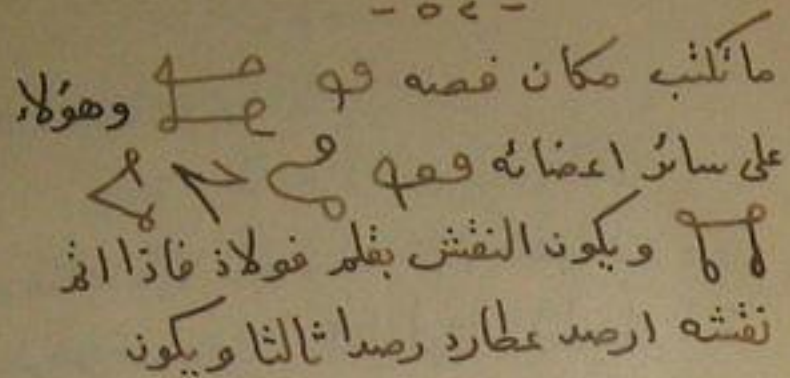 - ٥٤ -
ما تكتب مكان فصه وهؤلاء
على سائر اعضائه
ويكون النقش بقلم فولاذ فاذا اتم
نقشه ارصد عطارد رصدا ثالثا ويكون